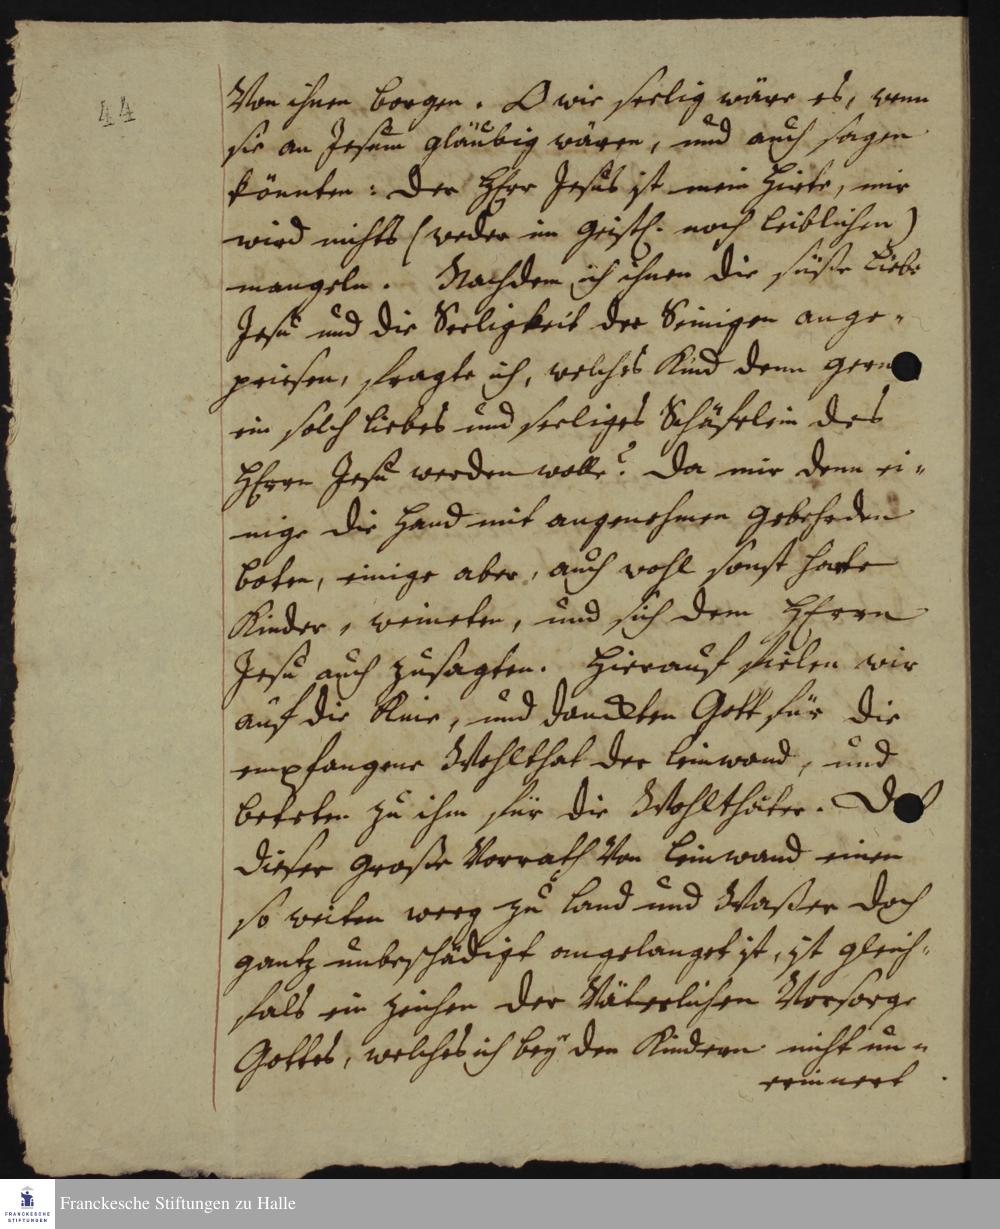 44
Von ihnen borgen. O wie seelig wäre es, wenn
sie an Jesum gläubig wären, und auch sagen
könnten: Der HErr Jesus ist mein Hirte, mir
wird nichts (weder im Geistl. noch leiblichen)
mangeln. Nachdem ich ihnen die süße Liebe
Jesu und die Seeligkeit der Seinigen ange-
priesen, fragte ich, welches Kind denn gern
ein solch liebes und seeliges Schäfelein des
HErrn Jesu werden wolle? Da mir denn ei-
nige die Hand mit angenehmen Gebehrden
boten, einige aber, auch wohl sonst harte
Kinder, weineten, und sich dem HErrn
Jesu auch zusagten. Hierauf fielen wir
auf die Knie, und danckten Gott für die
empfangene Wohlthat der Leinwand, und
beteten zu ihm für die Wohlthäter. Daß
dieser große Vorrath Von Leinwand einen
so weiten weeg zu Land und Waßer doch
gantz unbeschädigt angelanget ist, ist gleich-
fals ein zeichen der Väterlichen Vorsorge
Gottes, welches ich bey den Kindern nicht un-
erinnert
Franckesche Stiftungen zu Halle
FRANCKESCHE
STIFTUNGEN